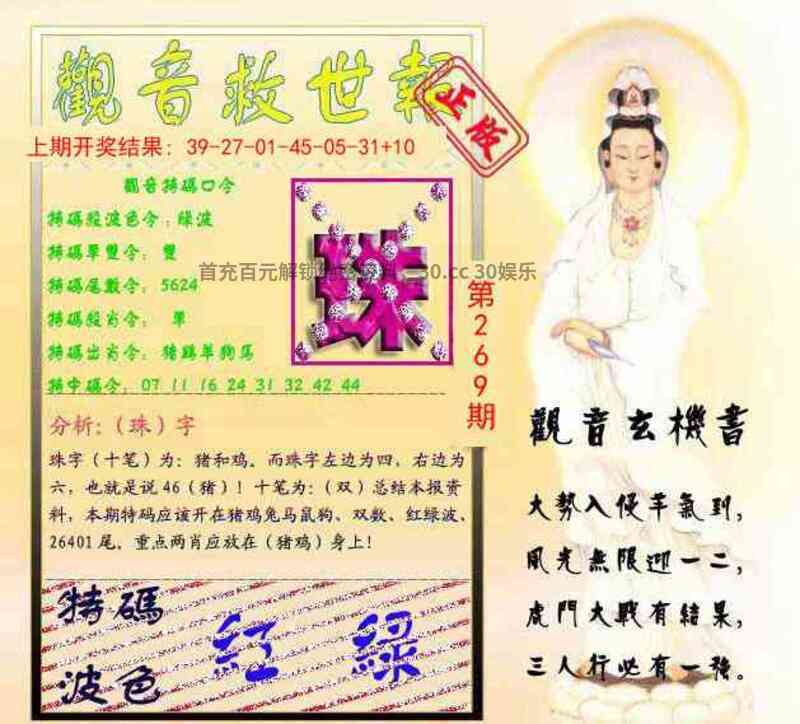 觀音救世報
正版
上期开奖结果：39-27-01-45-05-31+10
觀音特碼口令
特碼段波色令：綠波
特碼單雙令：雙
特碼尾數令：5624
特碼段肖令：單
特碼出肖令：猪雞羊狗馬
特中碼令：07 11 16 24 31 32 42 44
珠
首充百元解锁
30.cc 30娱乐
第269期
分析：（珠）字
珠字（十笔）为：猪和鸡。而珠字左边为四，右边为
六，也就是说46（猪）！十笔为：（双）总结本报资
料，本期特码应该开在猪鸡兔马鼠狗、双数、红绿波、
26401尾。重点两肖应放在（猪鸡）身上！
特碼
波色
紅 綠
觀音玄機書
大勢入侵羊氣到，
風光無限迎一二，
虎門大戰有結果，
三人行必有一強。